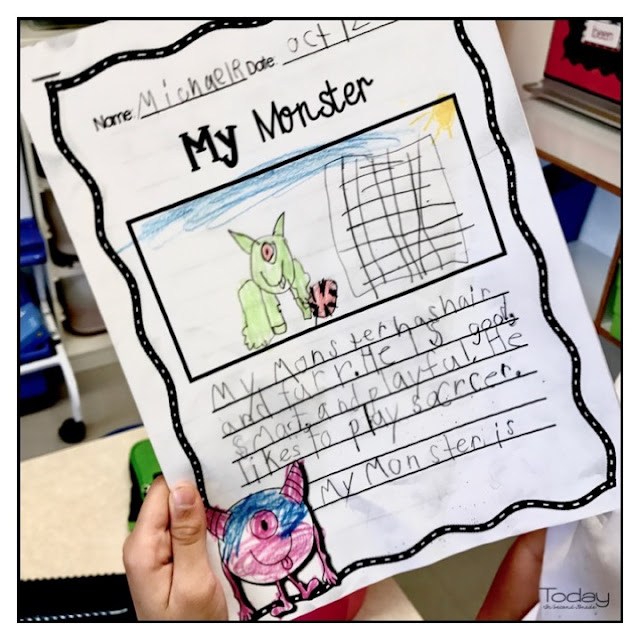 Name: Michael R Date: Oct 12
My Monster
My Monster has hair
and furr. He is good,
smart, and playful. He
likes to play soccer.
My Monster is
been
Today
in Second Grade